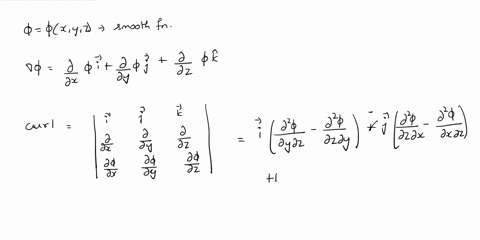 ϕ = ϕ(x,y,z) → smooth fn.
∇ϕ = ∂/∂x ϕ i⃗ + ∂/∂y ϕ j⃗ + ∂/∂z ϕ k̂
curl = | i⃗ j⃗ k⃗ ; ∂/∂x ∂/∂y ∂/∂z ; ∂ϕ/∂x ∂ϕ/∂y ∂ϕ/∂z | = i⃗ (∂²ϕ/∂y∂z − ∂²ϕ/∂z∂y) − j⃗ (∂²ϕ/∂z∂x − ∂²ϕ/∂x∂z)